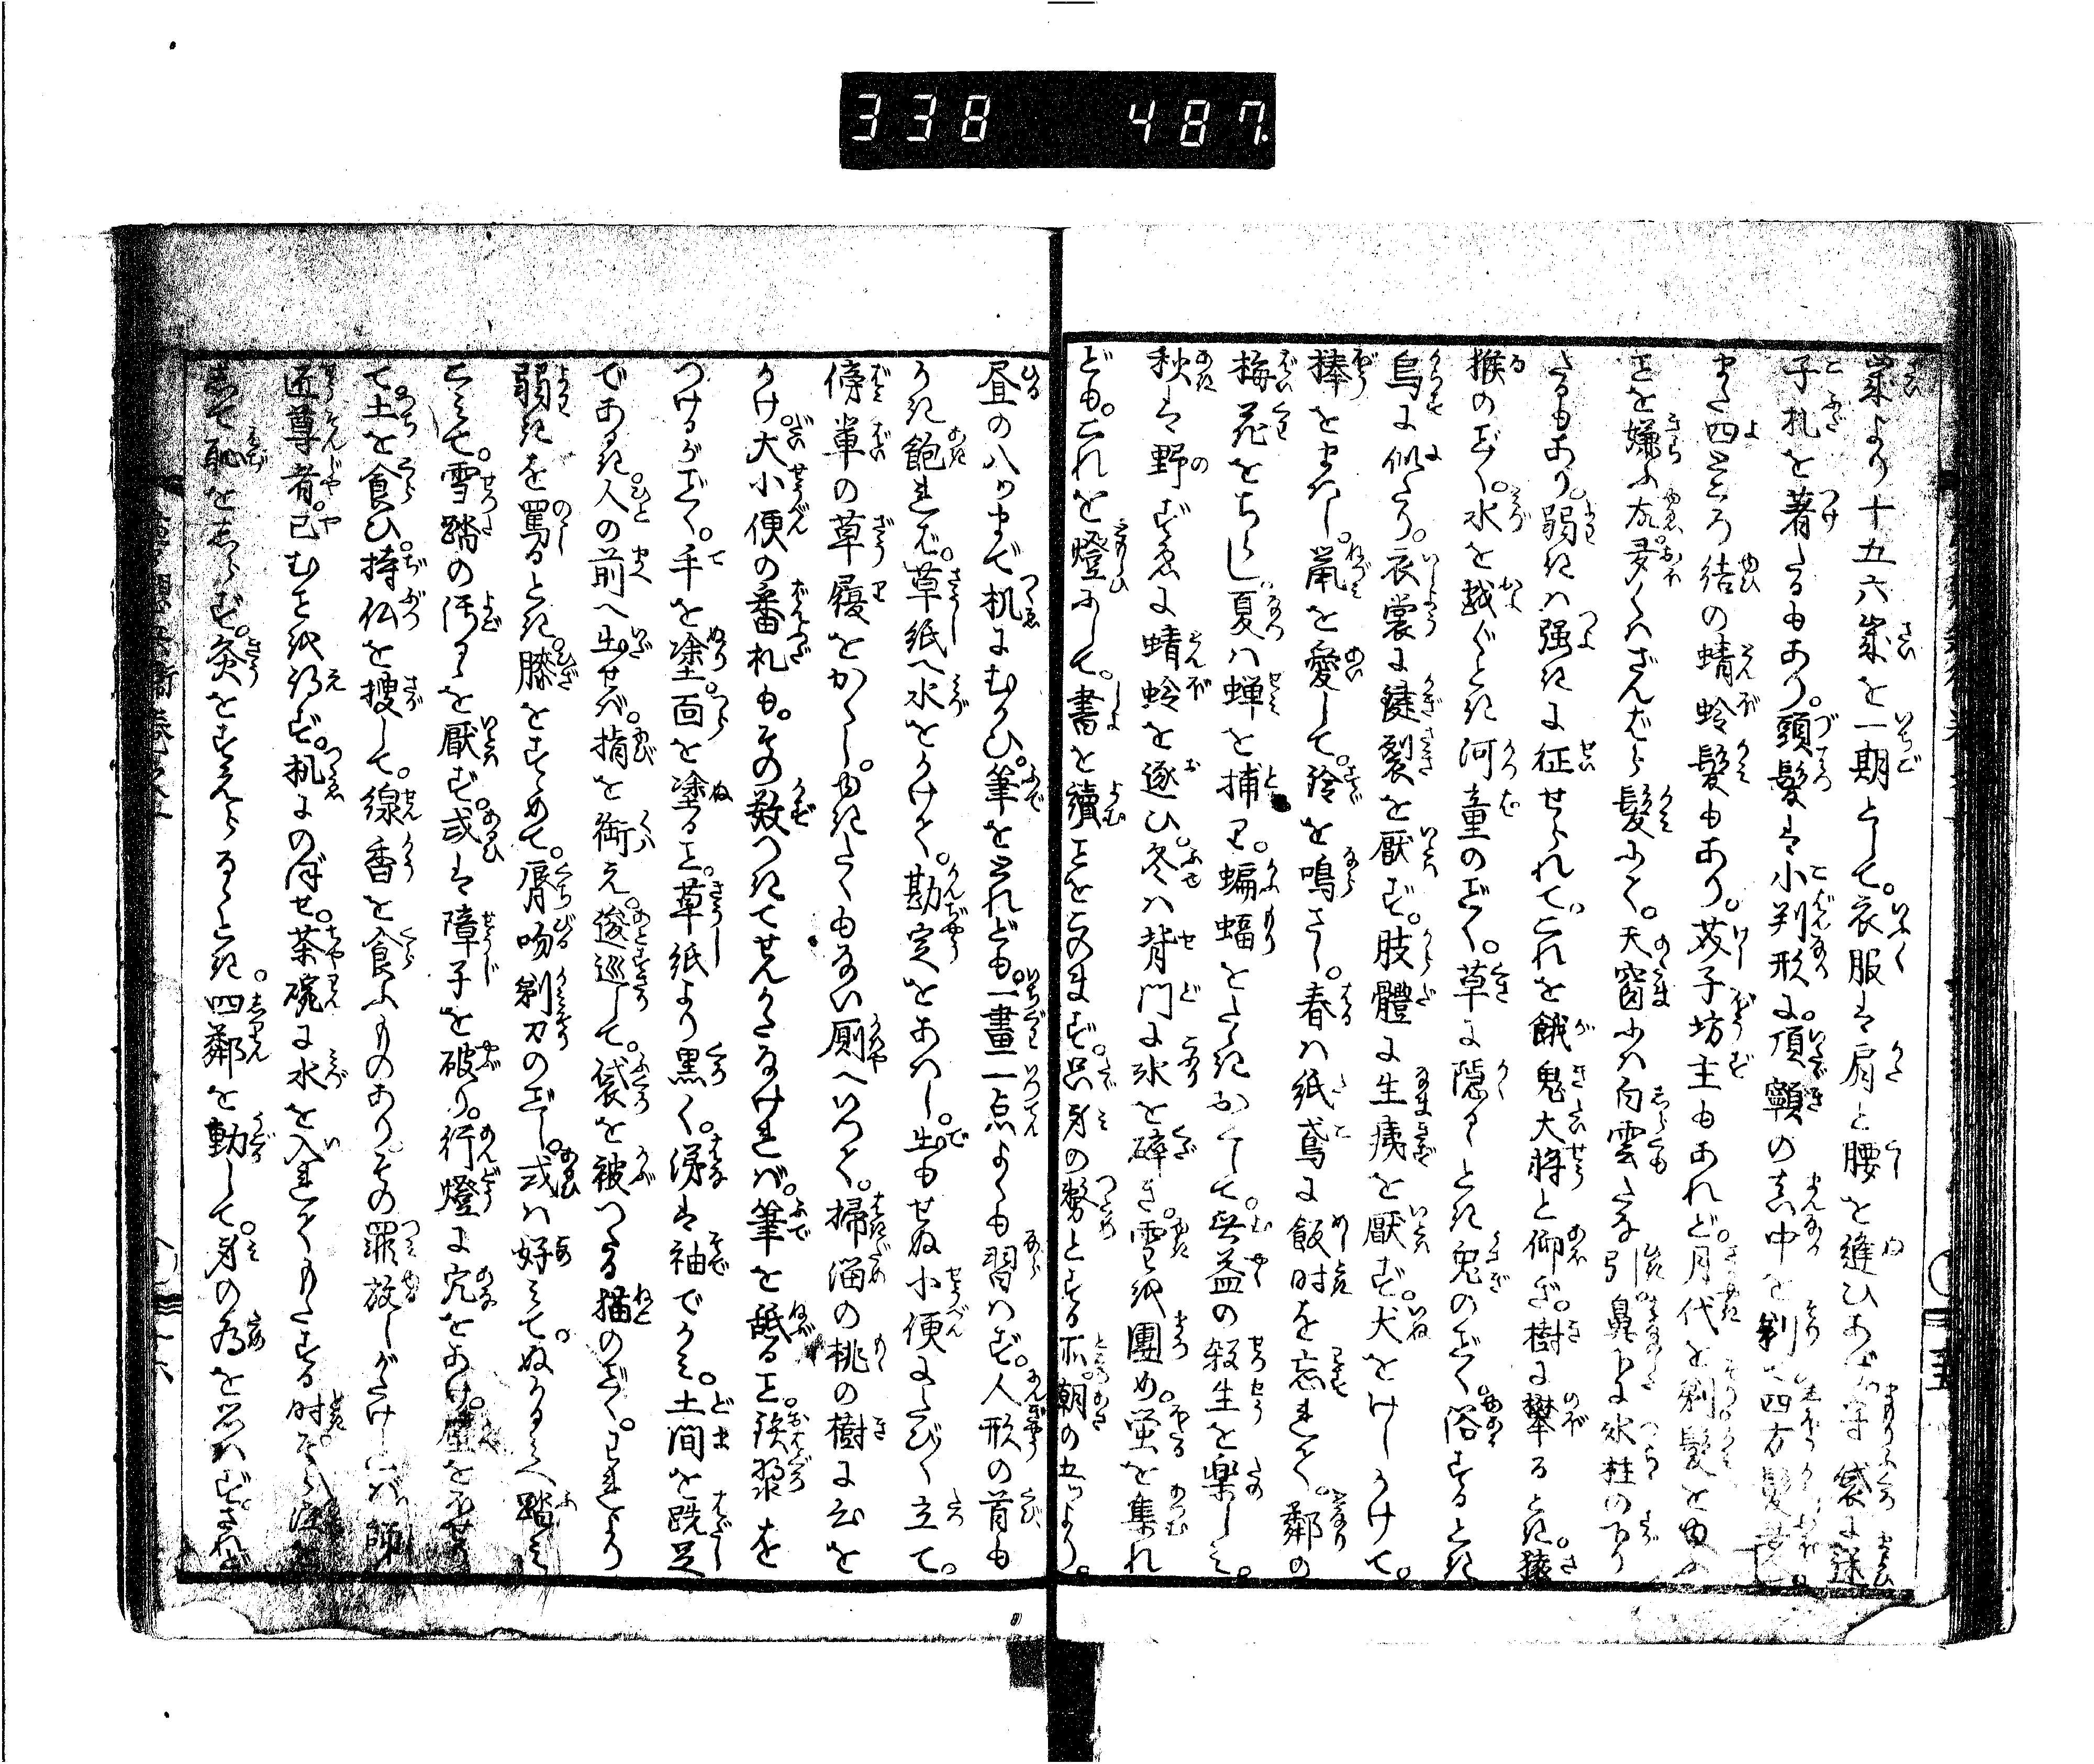 338 487
歳より十五六歳を一期として。衣服は肩と腰を縫ひあげ。守袋に迷
子札を著たるもあり。頭髪は小判形に。頂顖の真中を剃て四方髪
また四ところ結の蜻蛉髪もあり。芥子坊主もあれど。月代を剃髪を由ふ
ことを嫌ふ故。多くはざんばら髪にて。天窓には白雲たな引。鼻下に氷柱の下り
たるもあり。弱きは強きに征せられて。これを餓鬼大将と仰ぎ。樹に攀るとき。猿
猴のごく。水を越ぐとき河童のごく。草に隠るゝとき兎のごく。浴するとき
烏に似たり。衣裳に鍵裂を厭ず。肢體に生疵を厭ず。犬をけしかけて。
棒をまたし。鼠を愛して。鈴を鳴さし。春は紙鳶に飯时を忘れて。鄰の
梅花をちらし夏は蝉を捕り。蝙蝠をたゝきおとして。無益の殺生を楽しみ。
秋は野ずゑに蜻蛉を逐ひ。冬は背門に氷を碎き。雪紙團め。蛍を集れ
ども。これを燈にして。書を續ことをこのまず。只身の勤とする所。朝の五ツより。
昼の八ツまで机にむかひ。筆をとれども。一畫一点よくも習はず。人形の首も
うき飽れば。草紙へ水をかけて。勘定をあはし。出もせぬ小便にたび〳〵立て。
傍輩の草履をかくし。ゆきたくもない厠へいつて。掃溜の桃の樹に尿を
うけ。大小便の番札も。その数つきてせんかたなければ。筆を舐ると。鉄漿を
つけるがごく。手を塗。面を塗ると。草紙より黒く。涕は袖でかみ。土間を跣足
であるき。人の前へ出せば。指を銜え。逡巡して。袋を被つたる猫のごく。己れより
弱きを罵るとき。膝をすゝめて。唇吻剃刀のごし。或は好みて。ぬかるみへ踏み
こみて。雪踏の汚るゝを厭ず。或は障子を破り。行燈に穴をあけ。壁をむしり
て。土を食ひ。持仏を捜して。線香を食ふものあり。その罪赦しがたければ。師
匠尊者。已むことを得ず。机にのぼせ。茶碗に水を入れてもたする时。そら泣を
して恥をしらず。灸をすえらるゝとき。四鄰を動して。身の為を思はず。されど